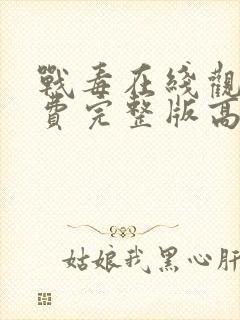 戰毒在綫觀
費完整版高
姑娘我黑心肝